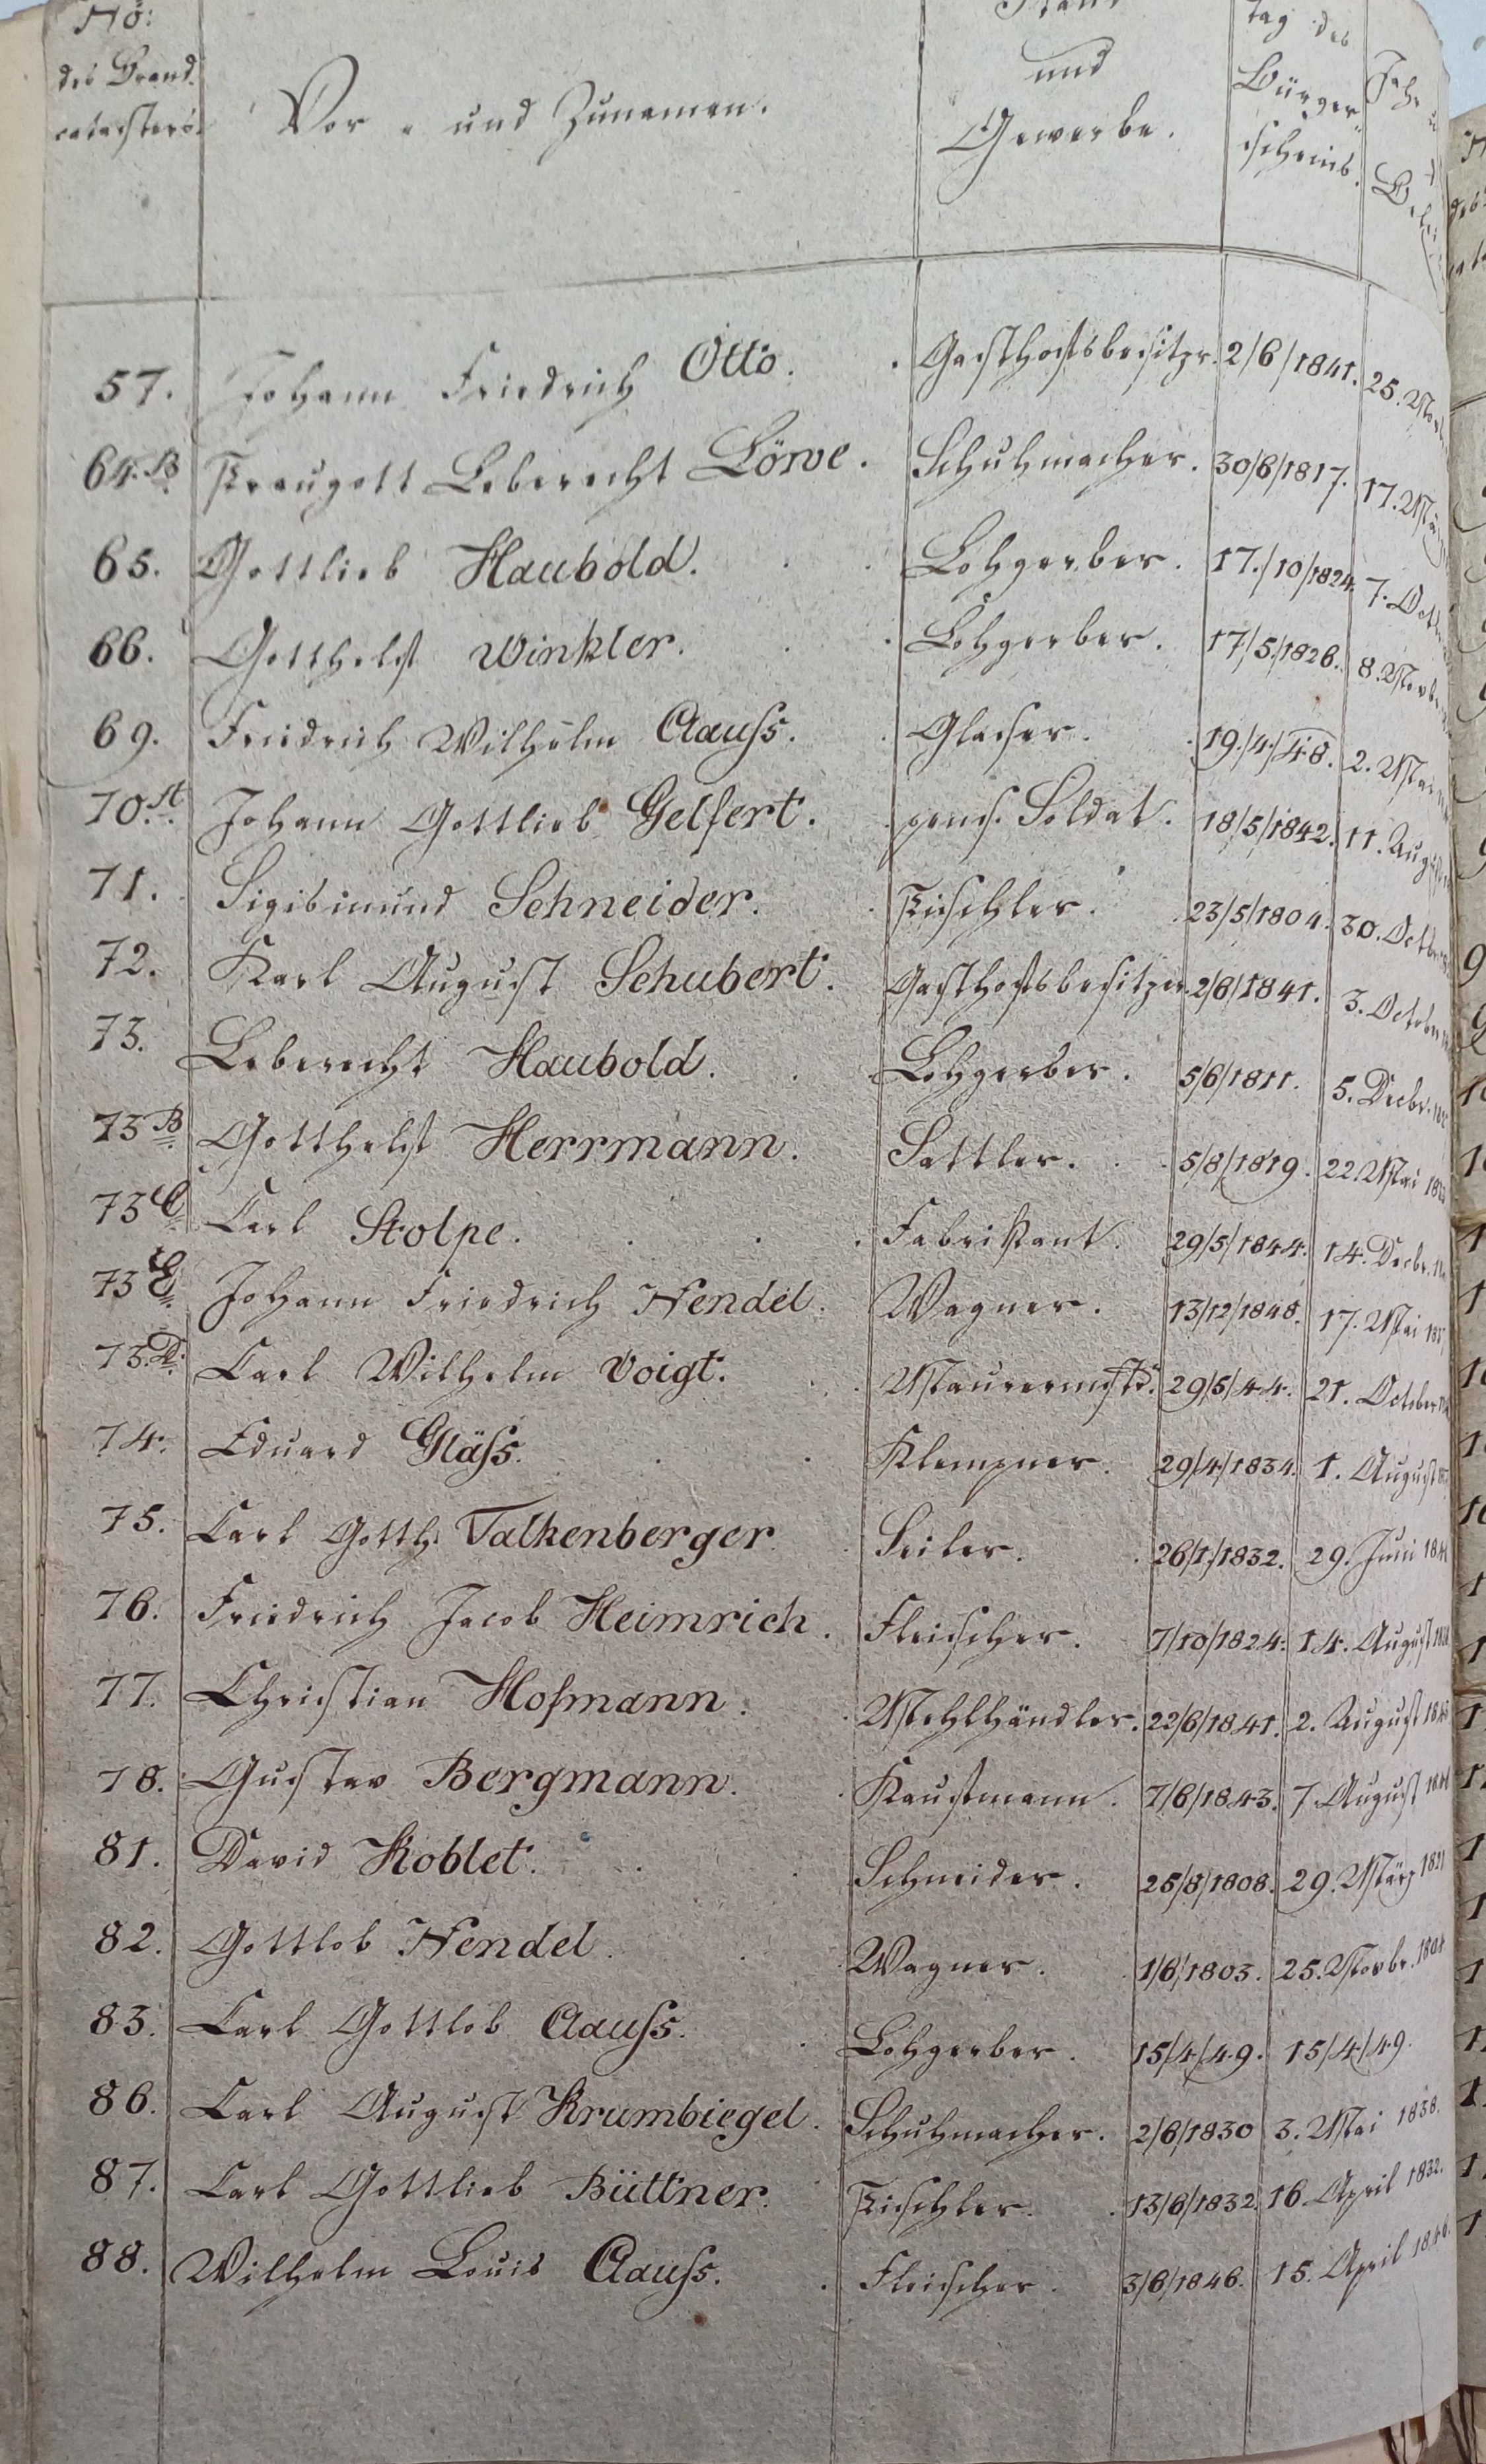 No:
des Brand-
catasters.
Vor- und Zunamen.
Stand
und
Gewerbe.
Tag des
Bürger-
scheins.
57. Johann Friedrich Otto. Gasthofsbesitzr. 2/6/1841. 25.
64.B Traugott Leberecht Löwe. Schuhmacher. 30/6/1817. 17.
65. Gottlieb Haubold. Lohgerber. 17./10/1824. 7. Oct
66. Gotthelf Winkler. Lohgerber. 17/5./1826. 8. Novb
69. Friedrich Wilhelm Clauss. Glaser. 19./4./48. 2. Mai
70.A. Johann Gottlieb Gelfert. pens. Soldat. 18/5/1842. 11. August
71. Sigismund Schneider. Tischler. 23/5/1804. 30. Octbr
72. Karl August Schubert. Gasthofsbesitzer. 2/6/1841. 3. October
73. Leberecht Haubold. Lohgerber. 5/6/1811. 5. Decbr.
73B Gotthelf Herrmann. Sattler. 5/8/1819. 22. Mai
73C Carl Stolpe. Fabrikant. 29/5/1844. 14. Decbr.
73E Johann Friedrich Hendel. Wagner. 13/12/1848. 17. Mai
73.D. Carl Wilhelm Voigt. Maurermstr. 29/5/44. 21. October
74. Eduard Gläss. Klempner. 29/4/1834. 1. August
75. Carl Gotth. Falkenberger Seiler. 26/1/1832. 29. Juni
76. Friedrich Jacob Heimrich. Fleischer. 7/10/1824. 14. August
77. Christian Hofmann. Mehlhändler. 22/6/1841. 2. August
78. Gustav Bergmann. Kaufmann. 7/6/1843. 7. August
81. David Koblet. Schneider. 25/8/1808. 29. März 1821
82. Gottlob Hendel. Wagner. 1/6/1803. 25. Novbr. 1804
83. Carl Gottlob Clauss. Lohgerber. 15/4/49. 15/4/49.
86. Carl August Krumbiegel. Schuhmacher. 2/6/1830 3. Mai 1838.
87. Carl Gottlieb Büttner. Tischler. 13/6/1832. 16. April 1832.
88. Wilhelm Louis Clauss. Fleischer. 3/6/1846. 15. April 1846.